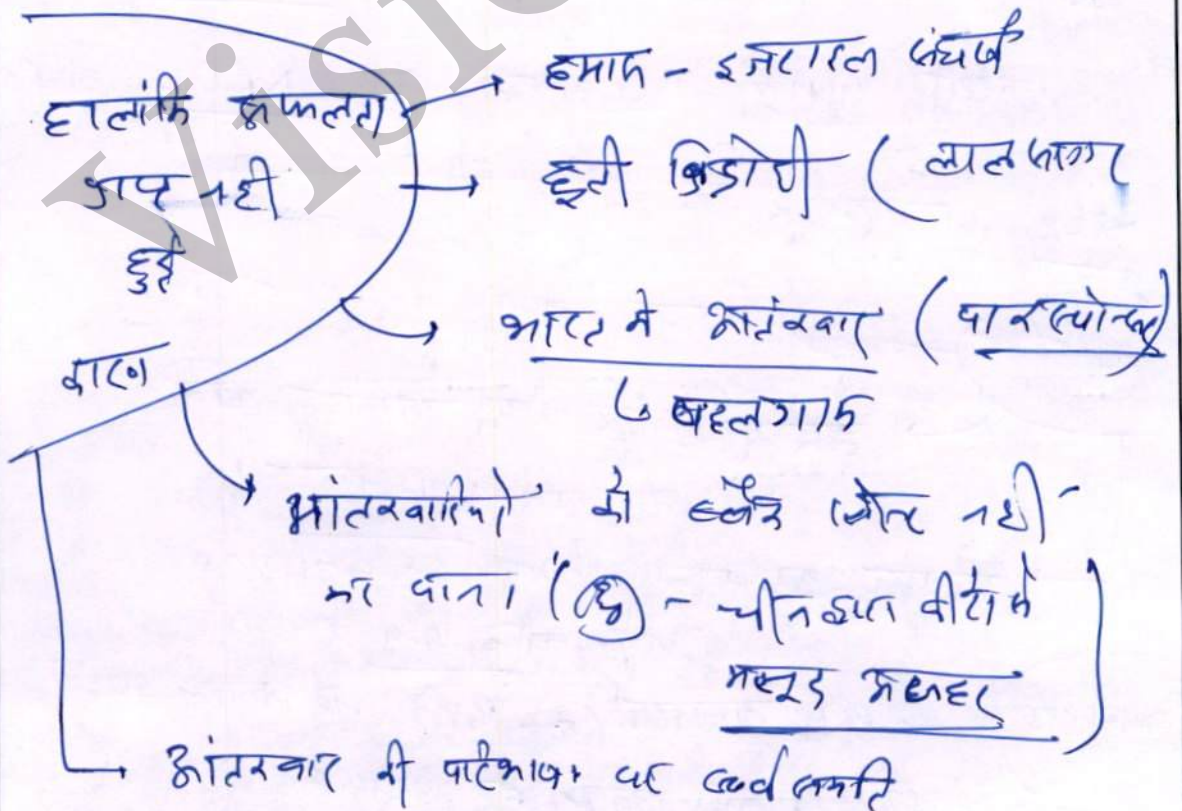 Visi
हालांकि सफलता
प्राप्त नही
हुई
कारण
→ हमास - इजराइल संघर्ष
→ हूती विद्रोही (लाल सागर
→ भारत मे आतंकवाद (पाक स्पोन्सर)
↳ पहलगाम
→ आंतकवादियो को ब्लैक लिस्ट नही
कर पाना। ( - चीन द्वारा वीटो मे
मसूद अजहर)
→ आंतकवाद की परिभाषा पर सर्वसम्मति